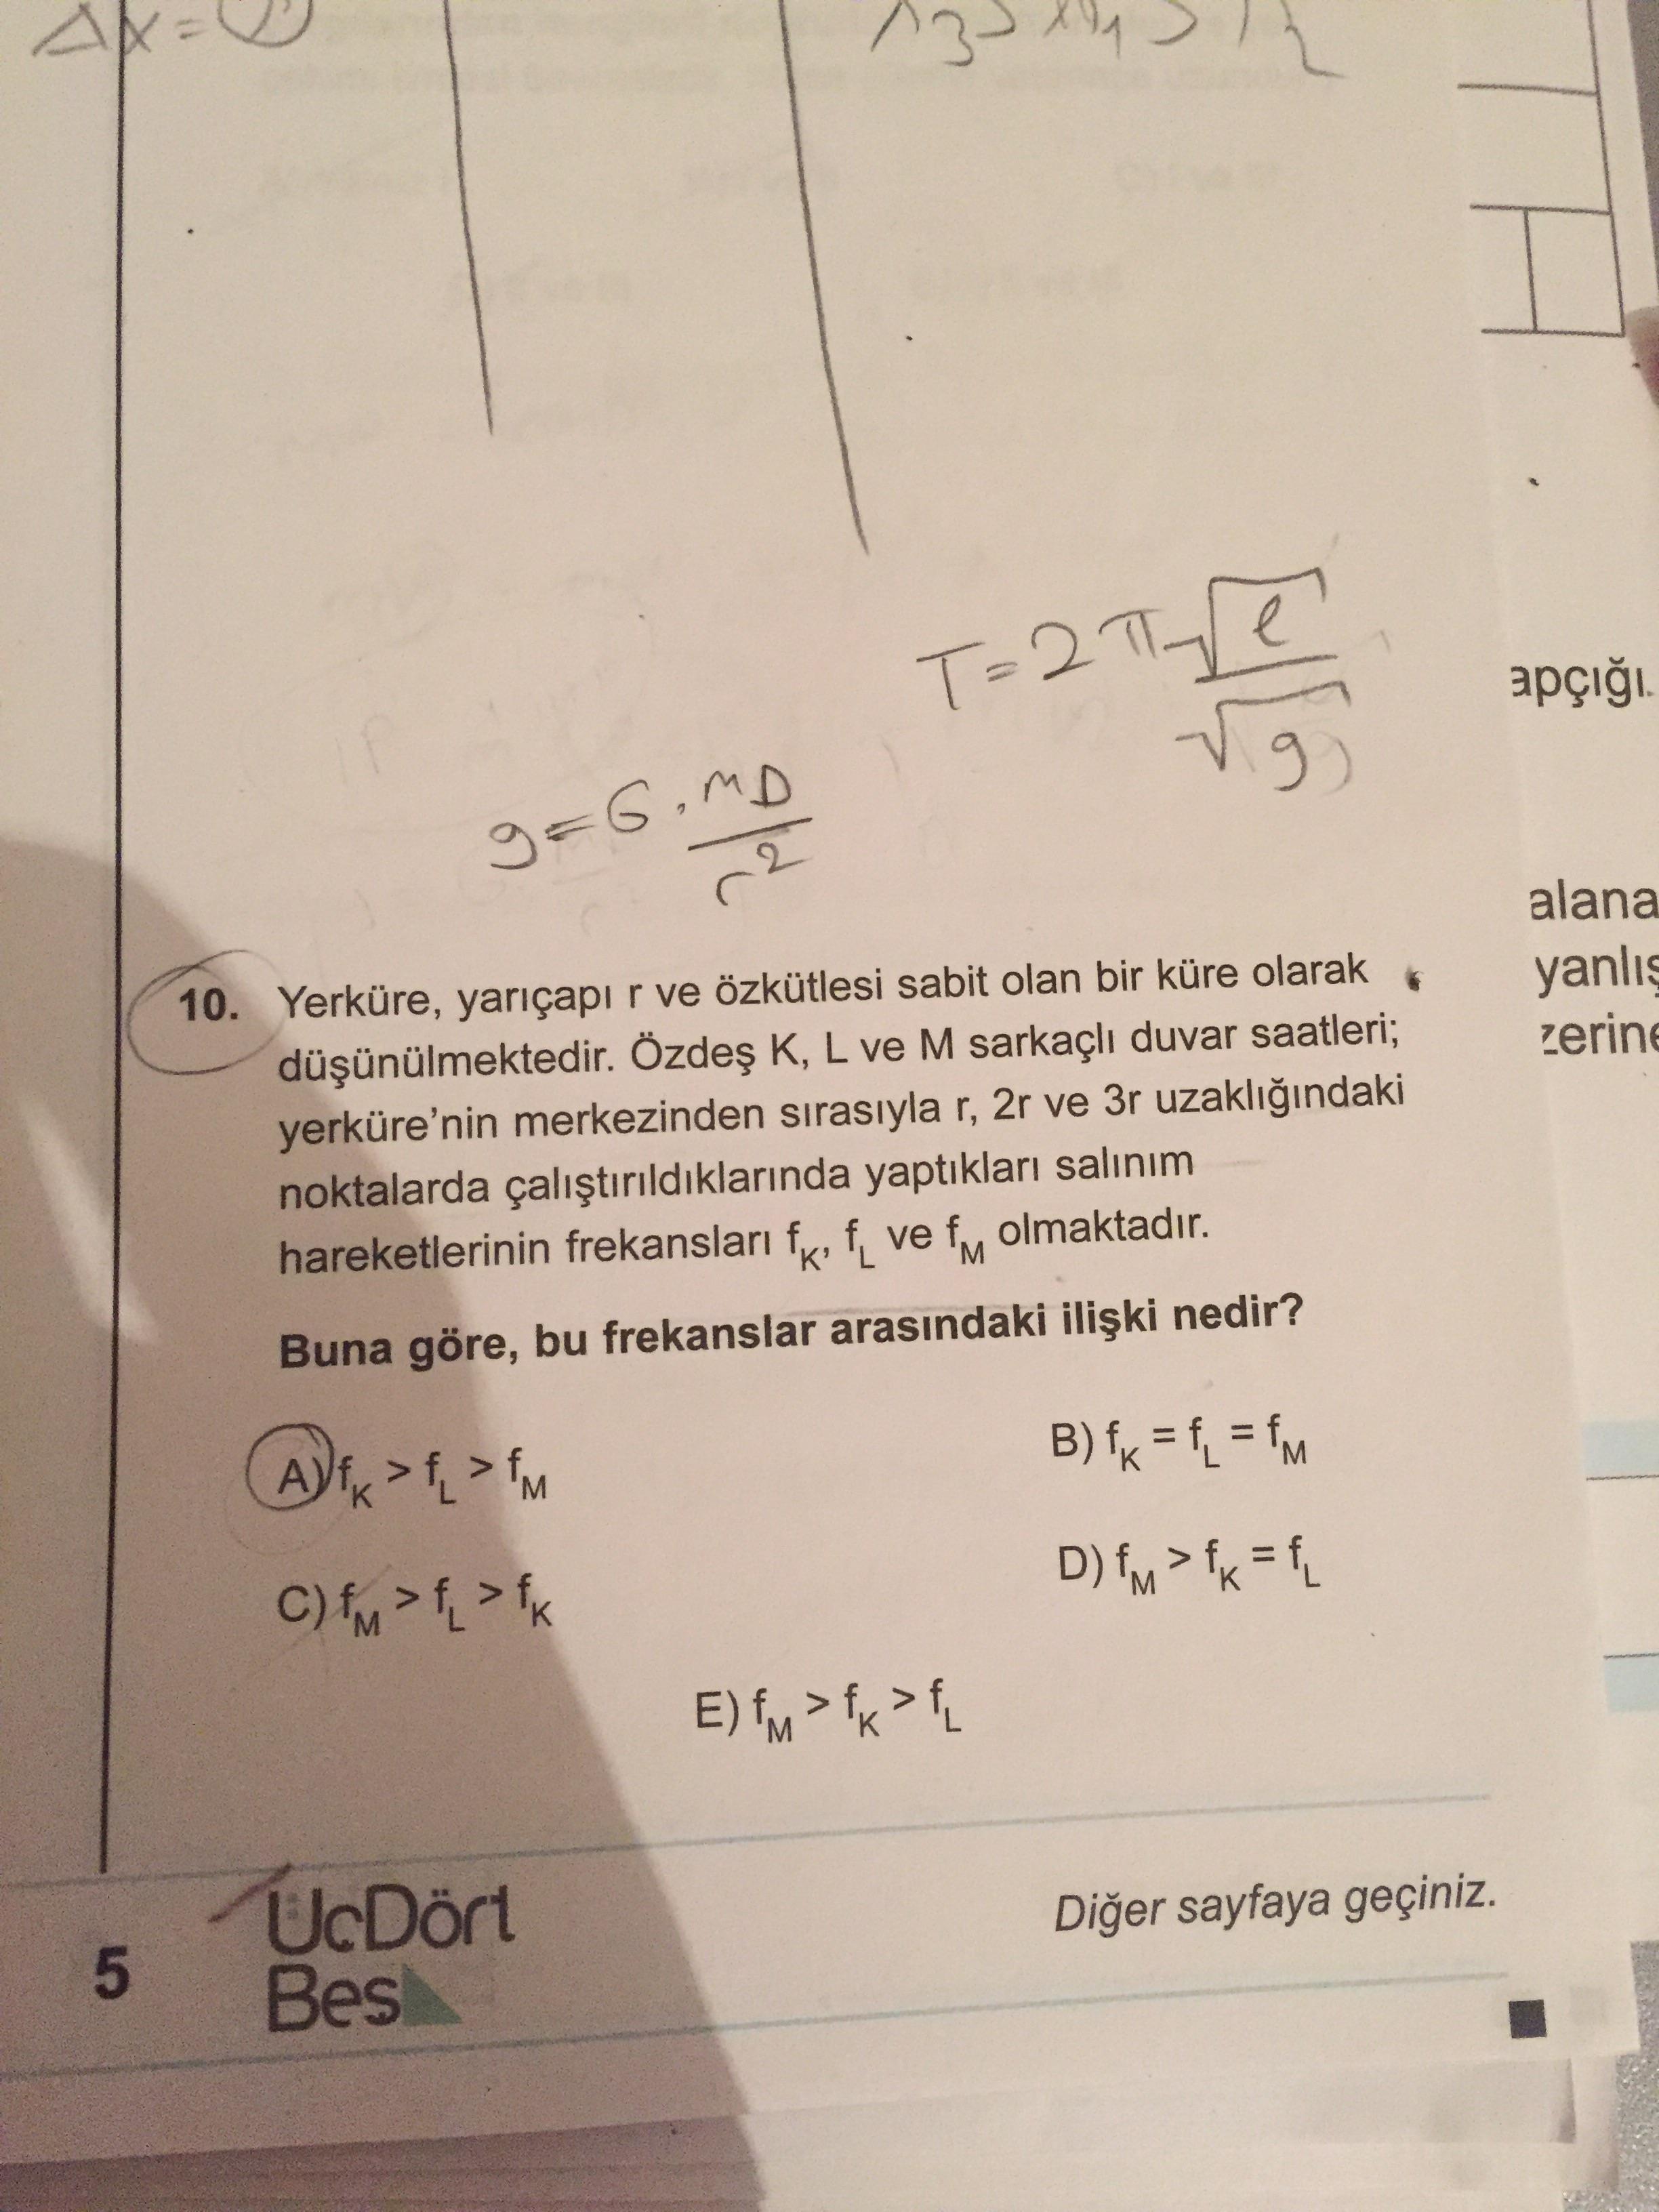 Δx=
T=2π√e/√g
g=G.MD/r²
10. Yerküre, yarıçapı r ve özkütlesi sabit olan bir küre olarak
düşünülmektedir. Özdeş K, L ve M sarkaçlı duvar saatleri;
yerküre'nin merkezinden sırasıyla r, 2r ve 3r uzaklığındaki
noktalarda çalıştırıldıklarında yaptıkları salınım
hareketlerinin frekansları f_K, f_L ve f_M olmaktadır.
Buna göre, bu frekanslar arasındaki ilişki nedir?
A) f_K > f_L > f_M
B) f_K = f_L = f_M
C) f_M > f_L > f_K
D) f_M > f_K = f_L
E) f_M > f_K > f_L
Diğer sayfaya geçiniz.
5
ÜçDört
Beş
apçığı.
alana
yanlış
zerine